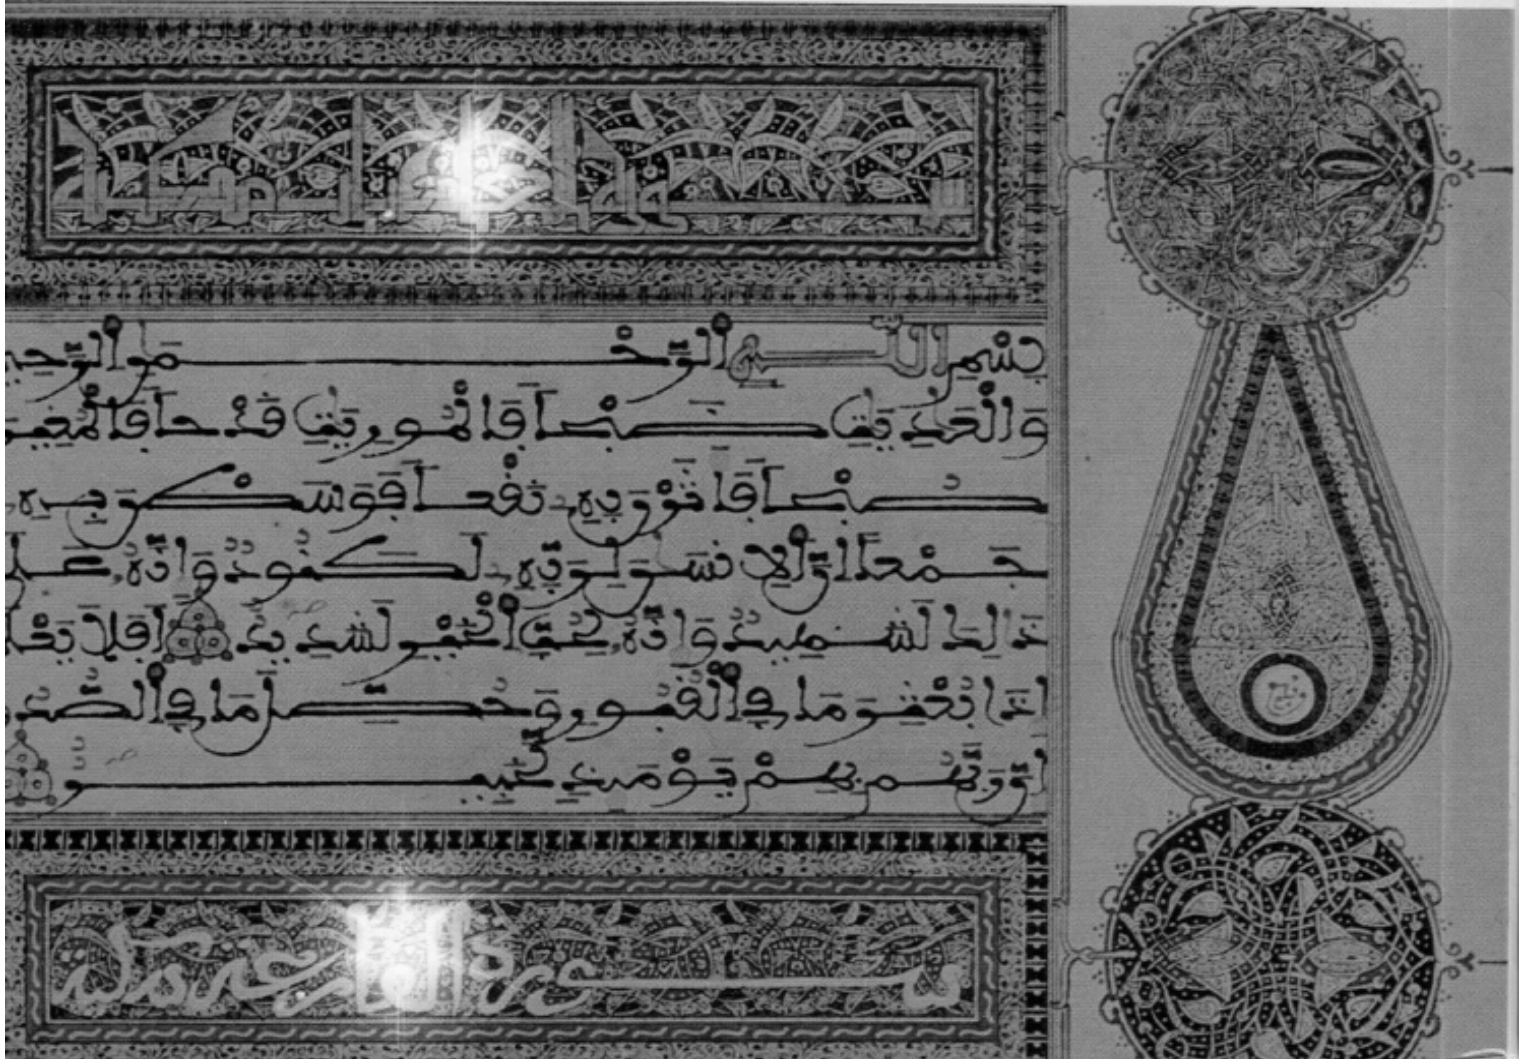 بسم الله الرحمن الرحيـ
والعديت ضبحا فالموريت قدحا فالمغير
صبحا فأثرن به نقعا فوسطن به
جمعا إن الإنسن لربه لكنود وإنه على
ذلك لشهيد وإنه لحب الخير لشديد أفلا يعلـ
إذا بعثر ما في القبور وحصل ما في الصدو
إن ربهم بهم يومئذ لخبير
سورة القارعة